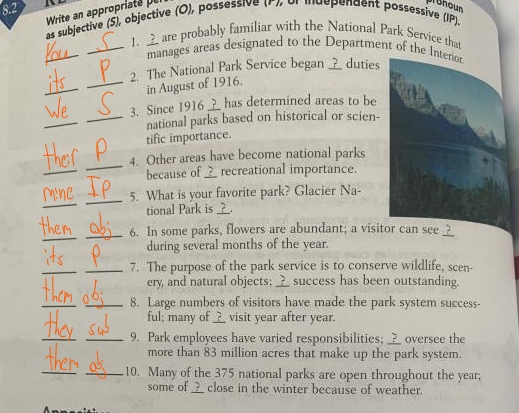 8.2
Write an appropriate
as subjective (S), objective (O), possessive (P), or independent possessive (IP).
You S 1. ? are probably familiar with the National Park Service that
manages areas designated to the Department of the Interior.
its P 2. The National Park Service began ? duties
in August of 1916.
We S 3. Since 1916 ? has determined areas to be
national parks based on historical or scien-
tific importance.
their P 4. Other areas have become national parks
because of ? recreational importance.
mine IP 5. What is your favorite park? Glacier Na-
tional Park is ?.
them obj 6. In some parks, flowers are abundant; a visitor can see ?
during several months of the year.
its P 7. The purpose of the park service is to conserve wildlife, scen-
ery, and natural objects; ? success has been outstanding.
them obj 8. Large numbers of visitors have made the park system success-
ful; many of ? visit year after year.
they sub 9. Park employees have varied responsibilities; ? oversee the
more than 83 million acres that make up the park system.
them obj 10. Many of the 375 national parks are open throughout the year;
some of ? close in the winter because of weather.